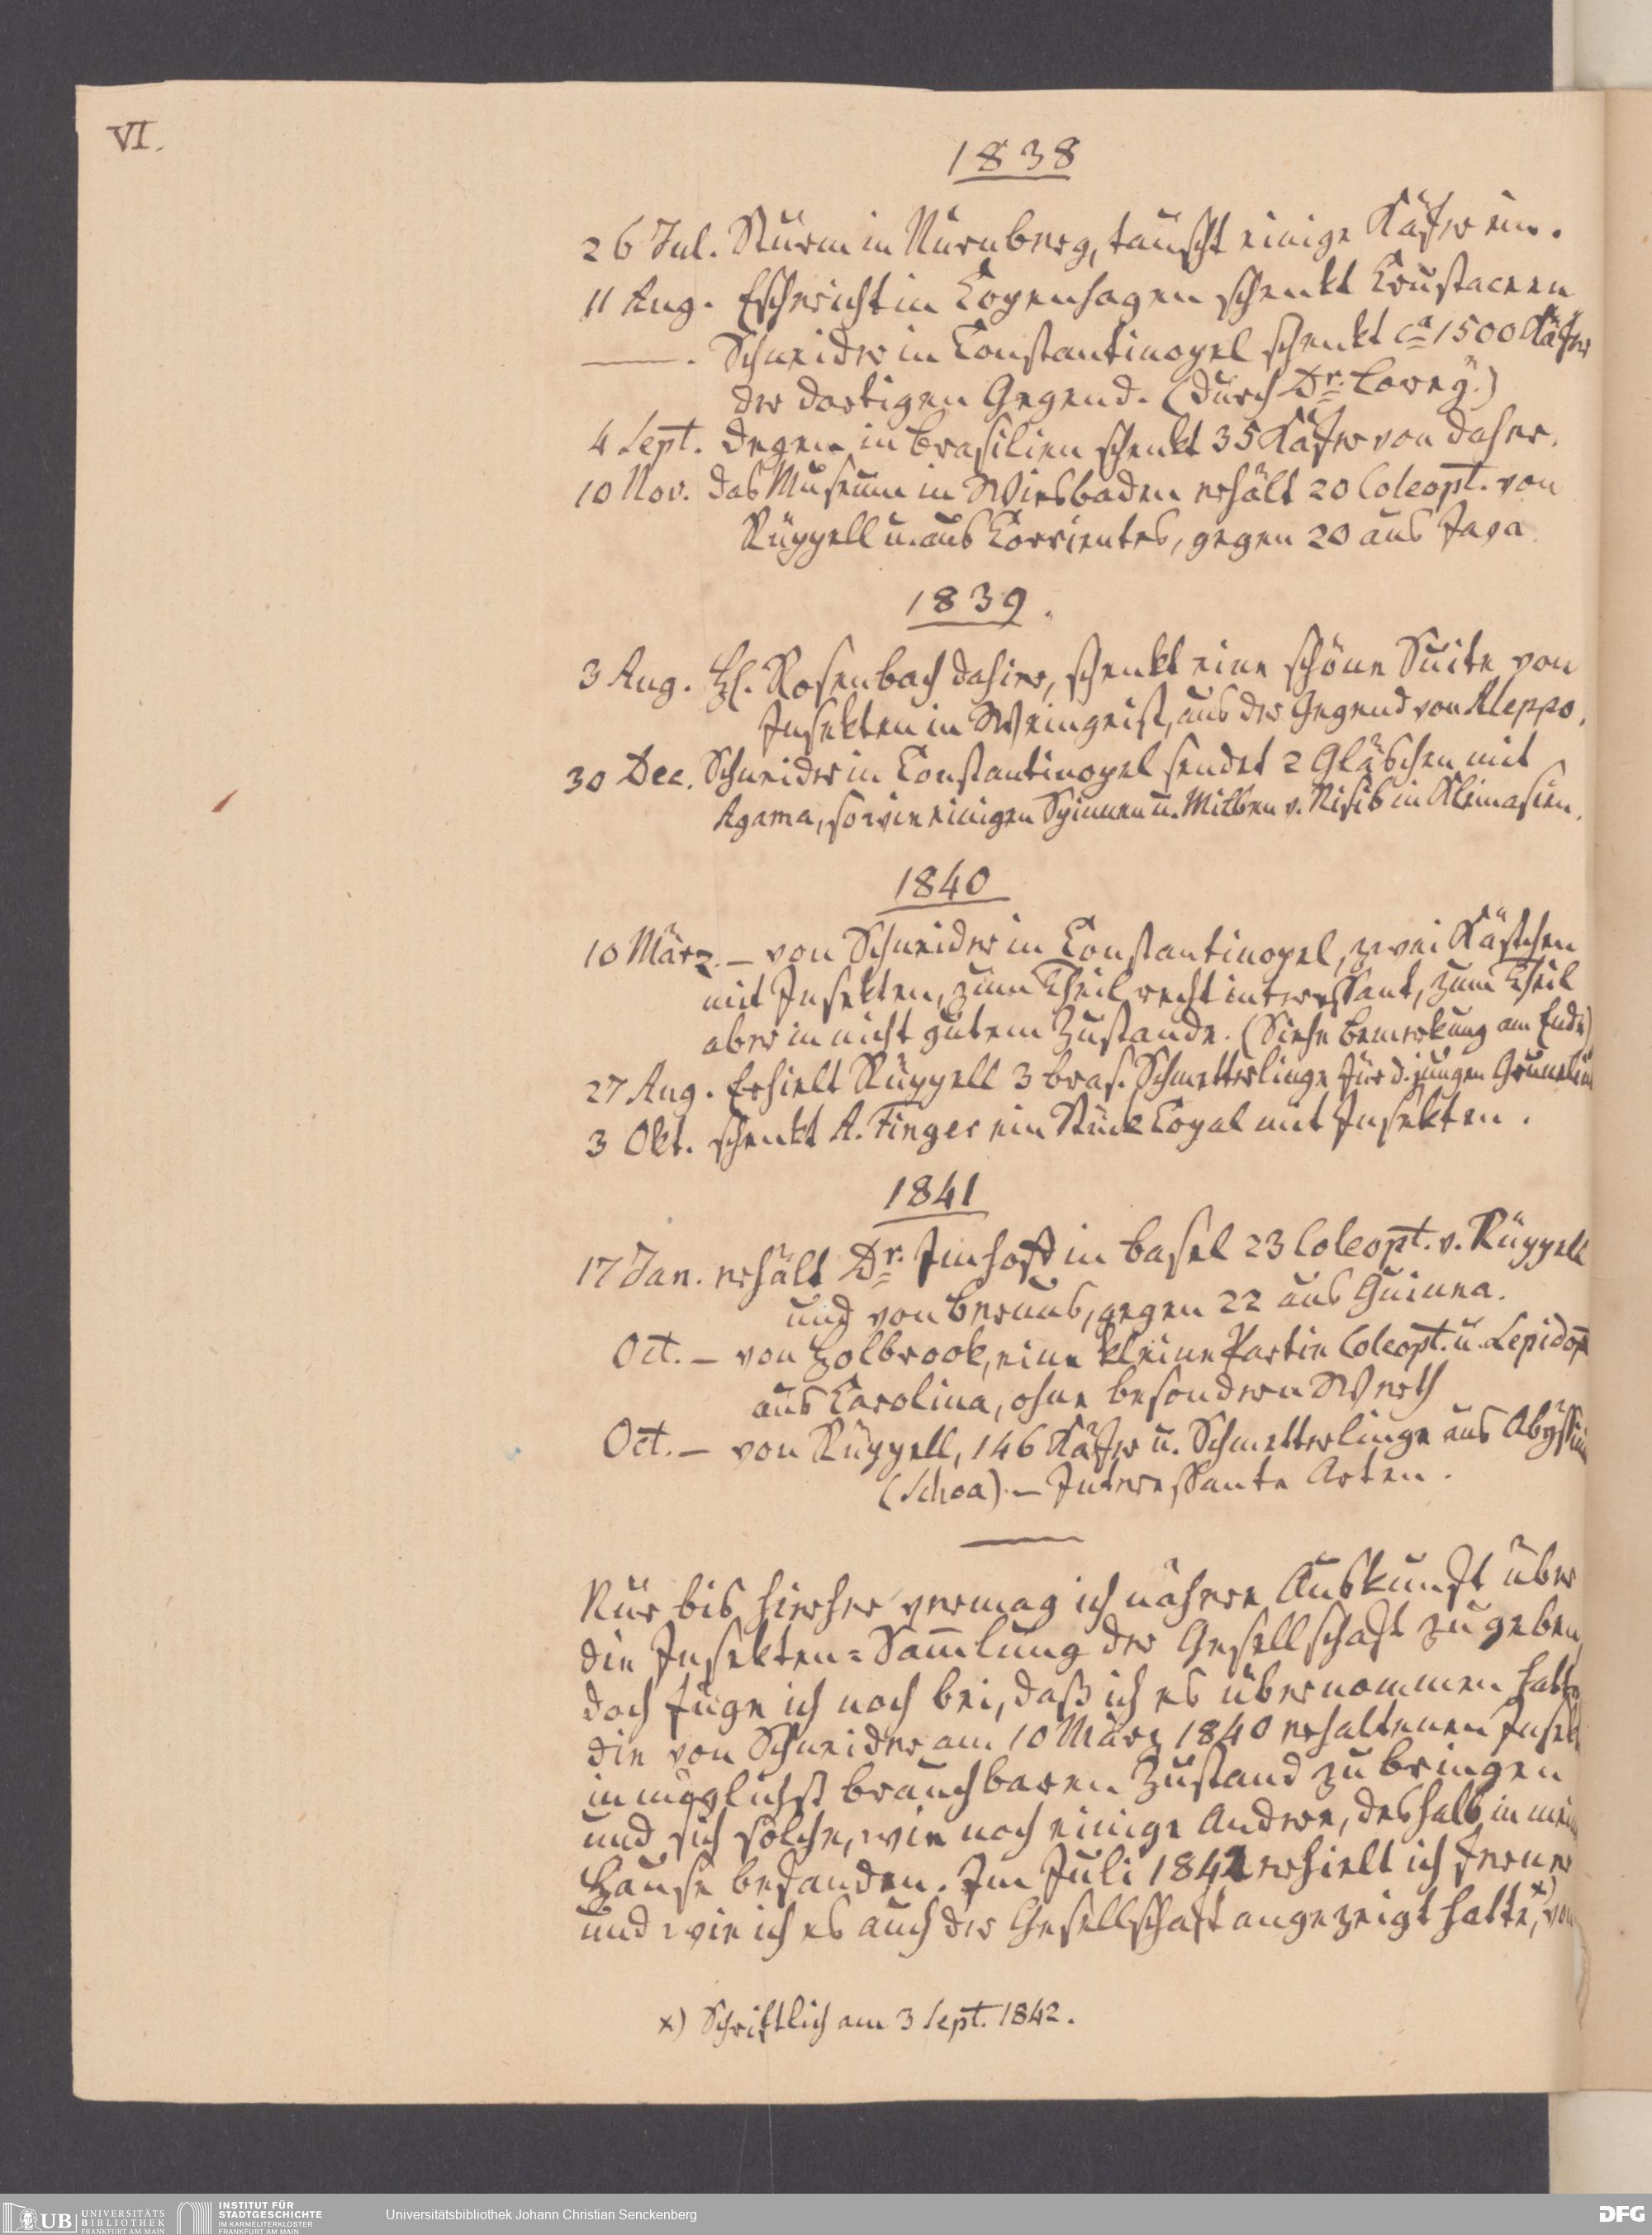 VI.
1838
26 Jul. Sturm in Nürnberg, tauscht einige Käfer ein.
11 Aug. Eschricht in Copenhagen schenkt Crustaceen
——. Schneider in Constantinopel schenkt ca 1500 Käfer
der dortigen Gegend. (durch Dr. Lorey.)
4 Sept. Degen in Brasilien schenkt 35 Käfer von daher.
10 Nov. das Museum in Wiesbaden erhält 20 Coleopt. von
Rüppell u. aus Corrientes, gegen 20 aus Java.
1839.
3 Aug. Hl. Rosenbach dahier, schenkt eine schöne Suite von
Insekten in Weingeist, aus der Gegend von Aleppo.
30 Dec. Schneider in Constantinopel sendet 2 Gläschen mit
Agama, sowie einigen Spinnen u. Milben v. Nisib in Kleinasien.
1840
10 März. – von Schneider in Constantinopel, zwei Kästchen
mit Insekten, zum Theil recht interessant, zum Theil
aber in nicht gutem Zustande. (Siehe Bemerkung am Ende)
27 Aug. Erhielt Rüppell 3 bras. Schmetterlinge für d. jungen
3 Okt. schenkt A. Finger ein Stück Copal mit Insekten.
1841
17 Jan. erhält Dr. Imhoff in Basel 23 Coleopt. v. Rüppell
und von Beraus, gegen 22 aus Guinea.
Oct. – von Holbrook, eine kleine Partie Coleopt. u. Lepidopt
aus Carolina, ohne besondern Werth
Oct. – von Rüppell, 146 Käfer u. Schmetterlinge aus Abyssin
(Schoa). – Interessante Arten.
Nur bis hierher vermag ich nähere Auskunft über
die Insekten=Sam̄lung der Gesellschaft zu geben,
doch füge ich noch bei, daß ich es übernommen hatte
die von Schneider am 10 März 1840 erhaltenen Insekt
in möglichst brauchbaren Zustand zu bringen
und sich solche, wie noch einige Andere, deshalb in mein
Hause befanden. Im Juli 1842 erhielt ich ferner
und wie ich es auch der Gesellschaft angezeigt hatte,x) von
x) Schriftlich am 3 Sept. 1842.
UB UNIVERSITÄTS
BIBLIOTHEK
FRANKFURT AM MAIN
INSTITUT FÜR
STADTGESCHICHTE
IM KARMELITERKLOSTER
FRANKFURT AM MAIN
Universitätsbibliothek Johann Christian Senckenberg
DFG